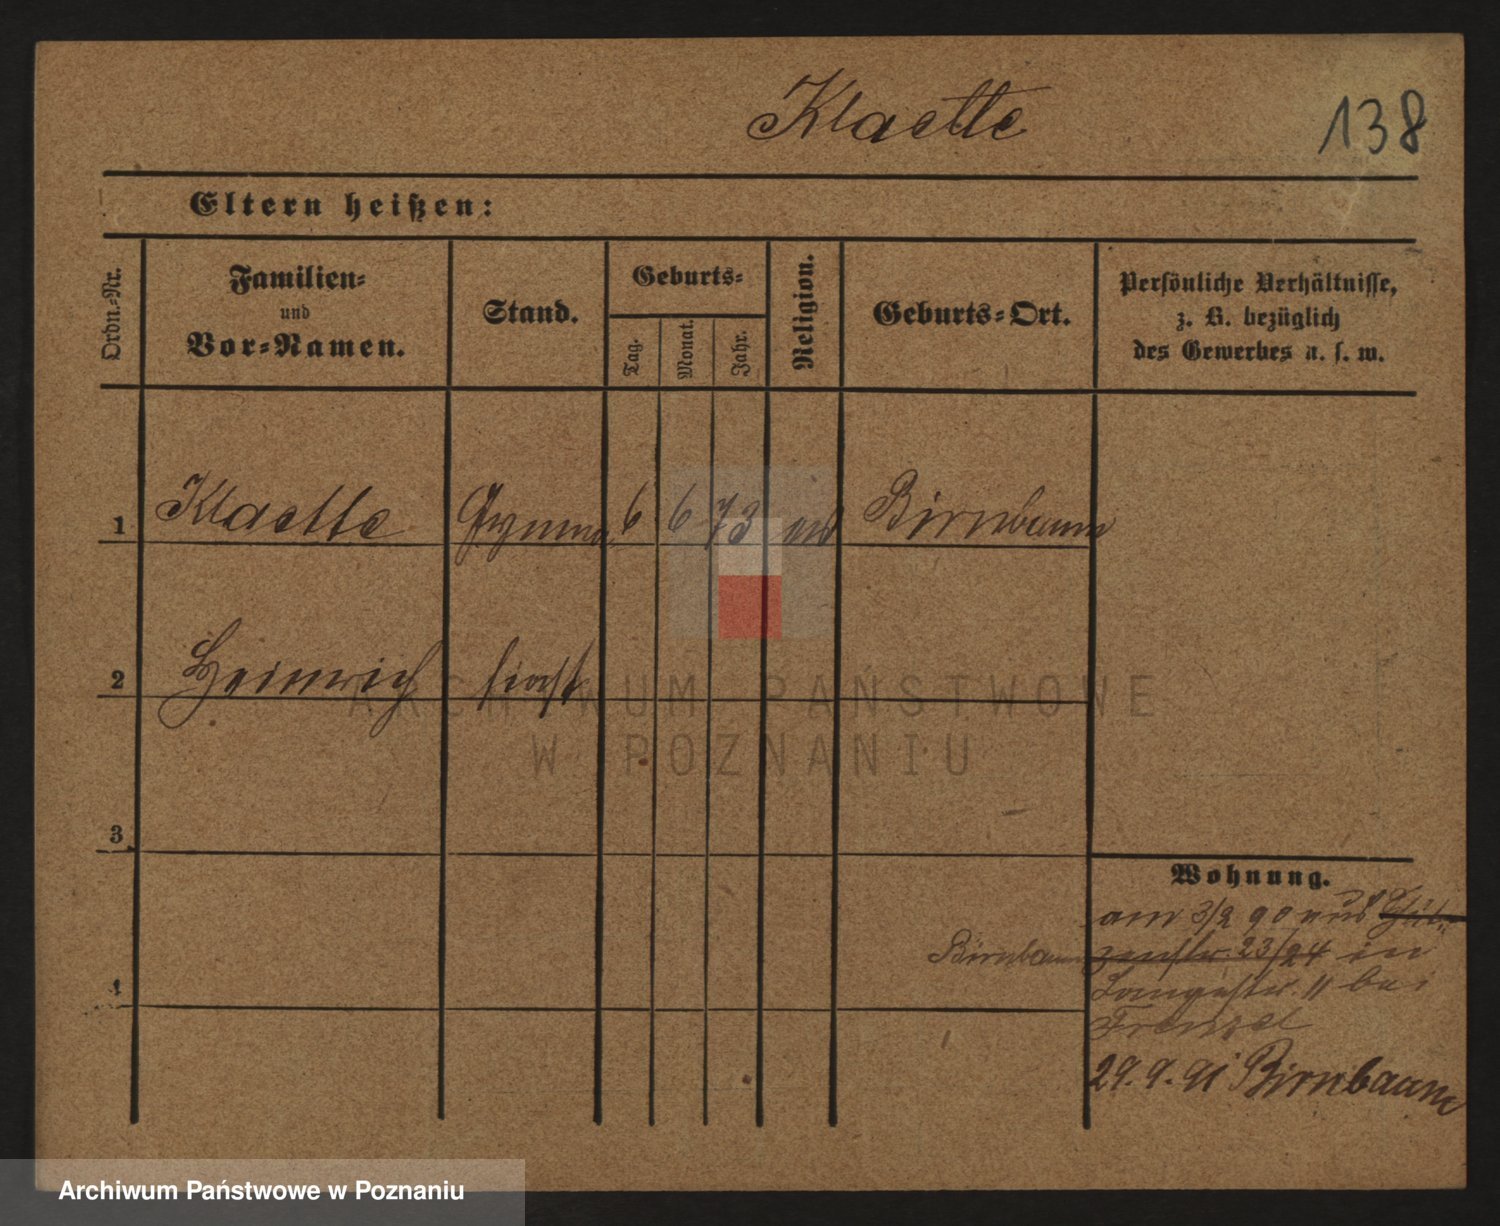 Klaette
138
Eltern heißen:
Ordn.-Nr.
Familien-
und
Vor-Namen.
Stand.
Geburts-
Tag.
Monat.
Jahr.
Religion.
Geburts-Ort.
Persönliche Verhältnisse,
z. B. bezüglich
des Gewerbes u. s. w.
1 Klaette Gymna 6 6 73 Birnbaum
2 Heinrich siast
3
4
ARCHIWUM PAŃSTWOWE
W POZNANIU
Wohnung.
am 3/2 90 aus
Birnbaum 23/24 in
Langestr. 11 bei
Frenzel
29.9.91 Birnbaum
Archiwum Państwowe w Poznaniu